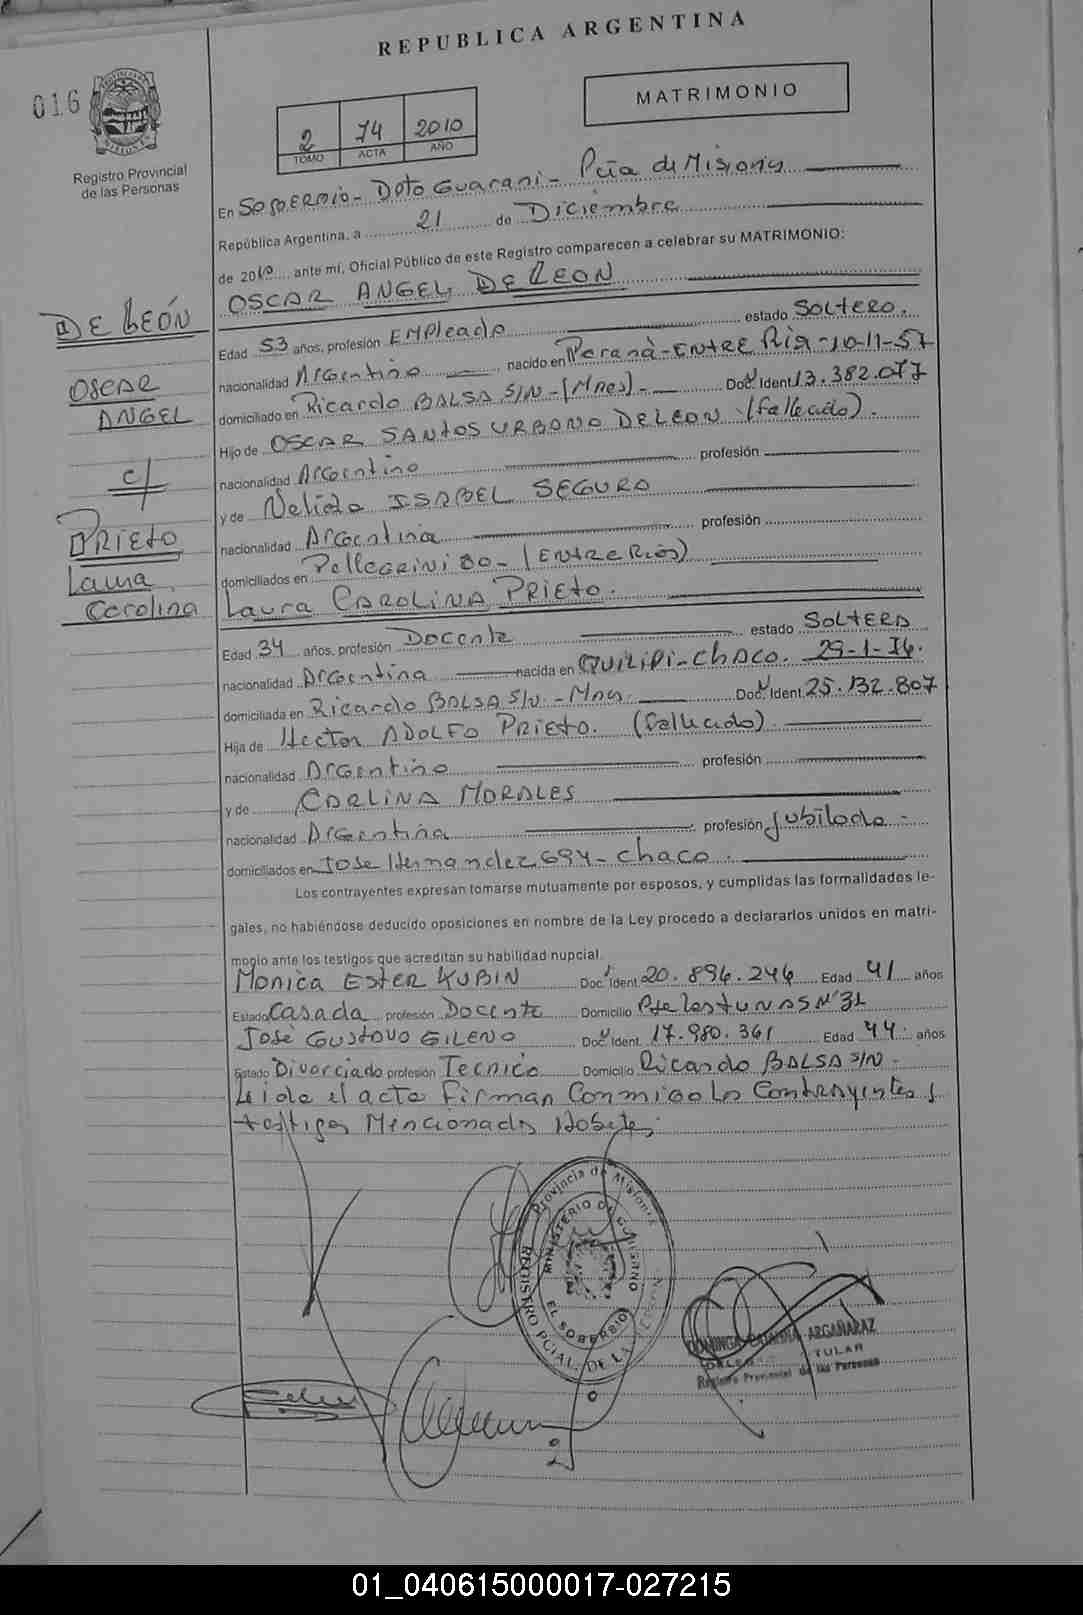 REPUBLICA ARGENTINA
016
MATRIMONIO
2 74 2010
TOMO ACTA AÑO
Registro Provincial
de las Personas
En Soberbio - Dpto Guarani - Pcia de Misiones
República Argentina, a 21 de Diciembre
de 2010 ante mí, Oficial Público de este Registro comparecen a celebrar su MATRIMONIO:
OSCAR ANGEL DE LEON
DE LEÓN
OSCAR
ANGEL
c/
PRIETO
Laura
Carolina
Edad 53 años, profesión Empleado estado SOLTERO.
nacionalidad Argentino nacido en Paraná - ENTRE Ríos - 10-11-57
domiciliado en Ricardo BALSA S/N - (Mnes) - Doc. Ident. 13.382.077
Hijo de OSCAR SANTOS URBANO DE LEON (fallecido).
nacionalidad Argentino profesión
y de Nelida ISABEL SEGURA
nacionalidad Argentina profesión
domiciliados en Pellegrini 80 - (ENTRE Ríos)
Laura CAROLINA PRIETO.
Edad 34 años, profesión Docente estado SOLTERA
nacionalidad Argentina nacida en QUITILIPI - CHACO. 29-1-76.
domiciliada en Ricardo BALSA S/N - Mnes. Doc. Ident. 25.132.807
Hija de Hector ADOLFO PRIETO. (fallecido)
nacionalidad Argentino profesión
y de CARLINA MORALES
nacionalidad Argentina profesión jubilada -
domiciliados en Jose Hernandez 694 - Chaco.
Los contrayentes expresan tomarse mutuamente por esposos, y cumplidas las formalidades le-
gales, no habiéndose deducido oposiciones en nombre de la Ley procedo a declararlos unidos en matri-
monio ante los testigos que acreditan su habilidad nupcial.
Monica ESTER KUBIN Doc. Ident. 20.896.246 Edad 41 años
Estado Casada profesión Docente Domicilio Pje Las TUNAS Nº 31
José Gustavo GILENO Doc. Ident. 17.980.361 Edad 44 años
Estado Divorciado profesión Tecnico Domicilio Ricardo BALSA S/N -
Leida el acta Firman Conmigo los Contrayentes y
testigos Mencionados Habiles
Provincia de Misiones
MINISTERIO DE GOBIERNO
EL SOBERBIO
REGISTRO PCIAL. DE LA
DOMINGA CATALINA ARGAÑARAZ
TITULAR
Registro Provincial de las Personas
01_040615000017-027215